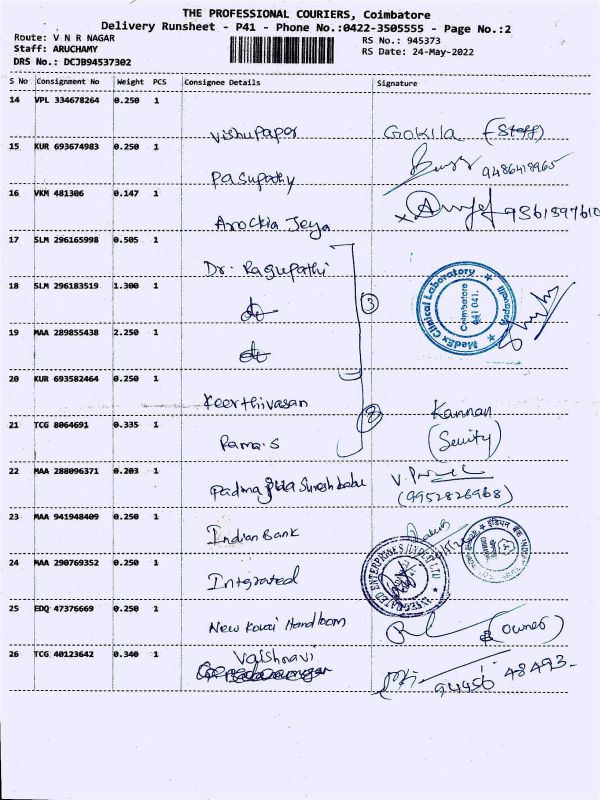 THE PROFESSIONAL COURIERS, Coimbatore
Delivery Runsheet - P41 - Phone No.:0422-3505555 - Page No.:2
Route: V N R NAGAR
RS No.: 945373
Staff: ARUCHAMY
RS Date: 24-May-2022
DRS No.: DCJB94537302
S No Consignment No Weight PCS Consignee Details Signature
14 VPL 334678264 0.250 1
Vishupaper GOKILA (Staff)
15 KUR 693674983 0.250 1
Pasupathy 9486418965
16 VKM 481306 0.147 1
Arockia Jeya 9361597610
17 SLM 296165998 0.505 1
Dr. Ragupathi
18 SLM 296183519 1.300 1
do 3
MedEx Clinical Laboratory
Coimbatore
641 041.
Vadavalli
19 MAA 289855438 2.250 1
do
20 KUR 693582464 0.250 1
Keerthivasan Kannan
21 TCG 8064691 0.335 1
2
Rama.S (Seuity)
22 MAA 288096371 0.203 1
Padma Suresh babu
(9952826968)
23 MAA 941948409 0.250 1
Indian Bank
24 MAA 290769352 0.250 1
Intgrated
INTEGRATED ENTERPRISES (I) PVT LTD
25 EDQ 47376669 0.250 1
New Kovai Handloom (owner)
26 TCG 40123642 0.340 1
Vaishnavi
94456 48493